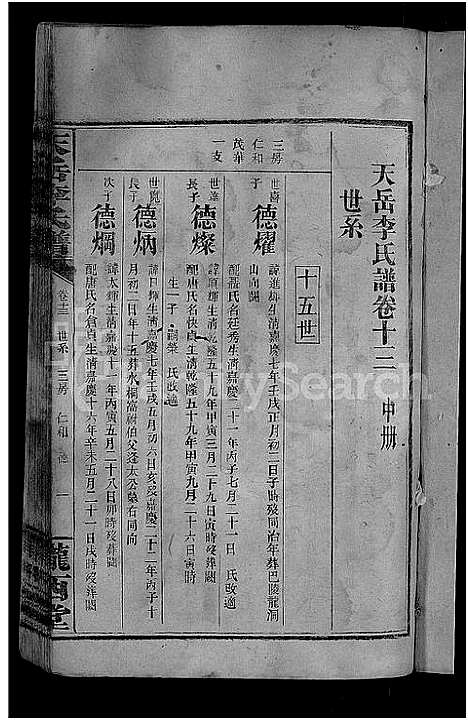 天岳李氏譜卷十三 中冊
世系
十五世
三房
仁和
茂華
一支
世喜
子
德燿
諱進輝生清嘉慶七年壬戌正月初二日子時殁同治年葬巴陵龍洞
山向闕
配龍氏名廷秀生清嘉慶二十一年丙子七月二十一日 氏改適
世逵
長子
德燦
諱煩輝生清乾隆五十九年甲寅三月二十九日寅時殁葬闕
配唐氏名快貞生清乾隆五十九年甲寅九月二十六日寅時
生一子 嗣榮 氏改適
世寬
長子
德炳
諱日輝生清嘉慶七年壬戌五月初六日亥殁嘉慶二十二年丙子十
月初二日年十五葬水桐嵩祔伯父逵太公墓右同向
次子
德炯
諱太輝生清嘉慶十一年丙寅五月二十八日卯時殁葬闕
配唐氏名倉貞生清嘉慶十六年辛未五月二十一日戌時殁葬闕
天岳李氏譜
卷十三 世系 三房 仁和 一
隴西堂